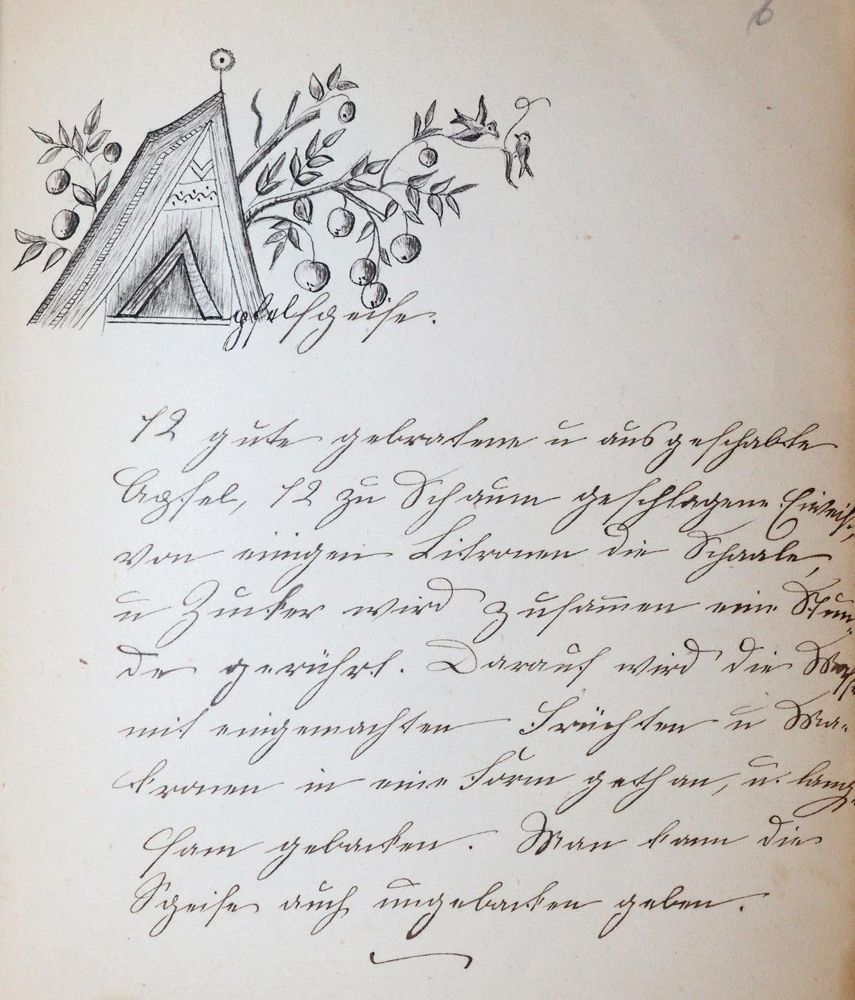 6
Apfelspeise.
12 gute gebratene u ausgeschabte
Apfel, 12 zu Schaum geschlagene Eiweiß,
von einigen Citronen die Schaale,
u Zucker wird zusammen eine Stun-
de gerührt. Darauf wird die Masse
mit eingemachten Früchten u Ma-
kronen in eine Form gethan, u. lang-
sam gebacken. Man kann die
Speise auch ungebacken geben.